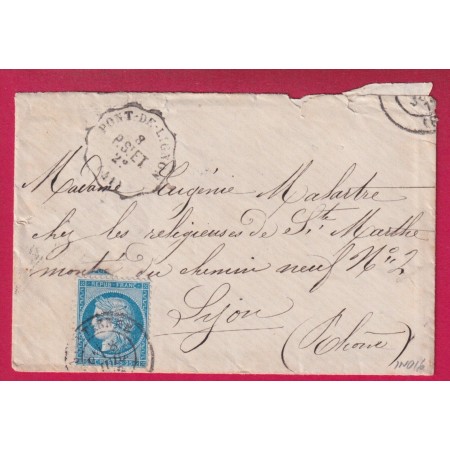 PONT-DE-LIGNON
8
P.ST ET
2º
Madame Eugénie Malartre
chez les religieuses de Ste Marthe
montée du chemin neuf No 2
Lyon
(Rhône)
REPUB. FRANC.